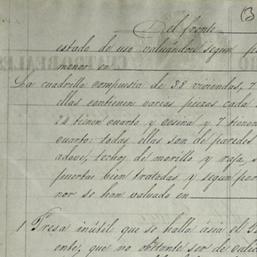 (3
Del frente
estado de uso valuandose segun por
menor en
La cuadrilla compuesta de 38 viviendas, 7
ellas contienen varias piezas cada
24 tienen cuarto y cosina y 7 tienen
cuarto: todas ellas son de paredes
adove, techos de morillo y raja, s
puertas bien tratadas y segun por
nor se han valuado en
1 Presa inútil que se halla
ente; que no obstante ser de